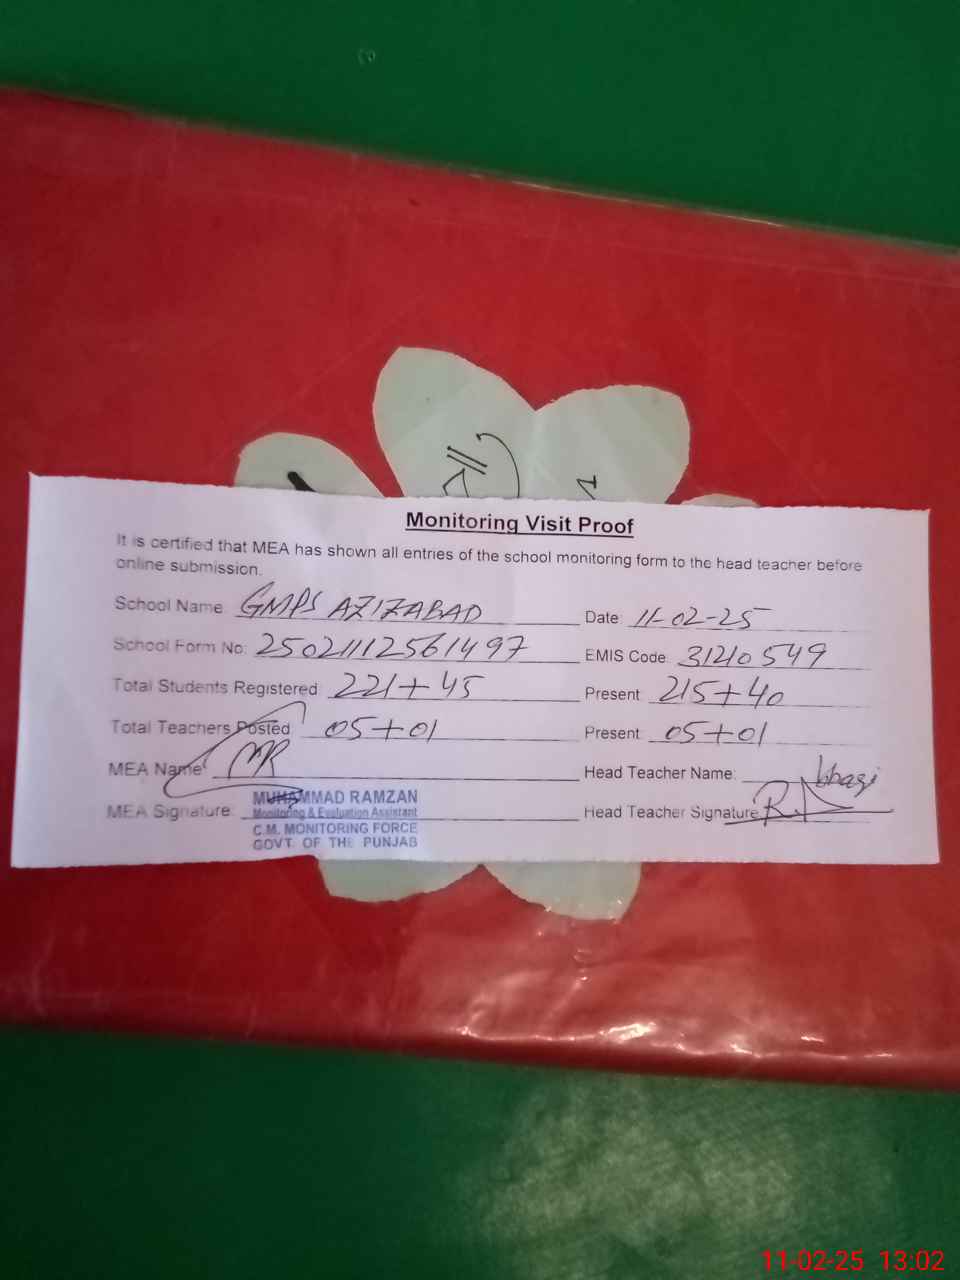 Monitoring Visit Proof
It is certified that MEA has shown all entries of the school monitoring form to the head teacher before
online submission.
School Name: GMPS AZIZABAD Date: 11-02-25
School Form No: 25021112561497 EMIS Code: 31210549
Total Students Registered: 221+45 Present: 215+40
Total Teachers Posted: 05+01 Present: 05+01
MEA Name: MR Head Teacher Name:
MEA Signature: Head Teacher Signature:
MUHAMMAD RAMZAN
Monitoring & Evaluation Assistant
C.M. MONITORING FORCE
GOVT. OF THE PUNJAB
11-02-25 13:02